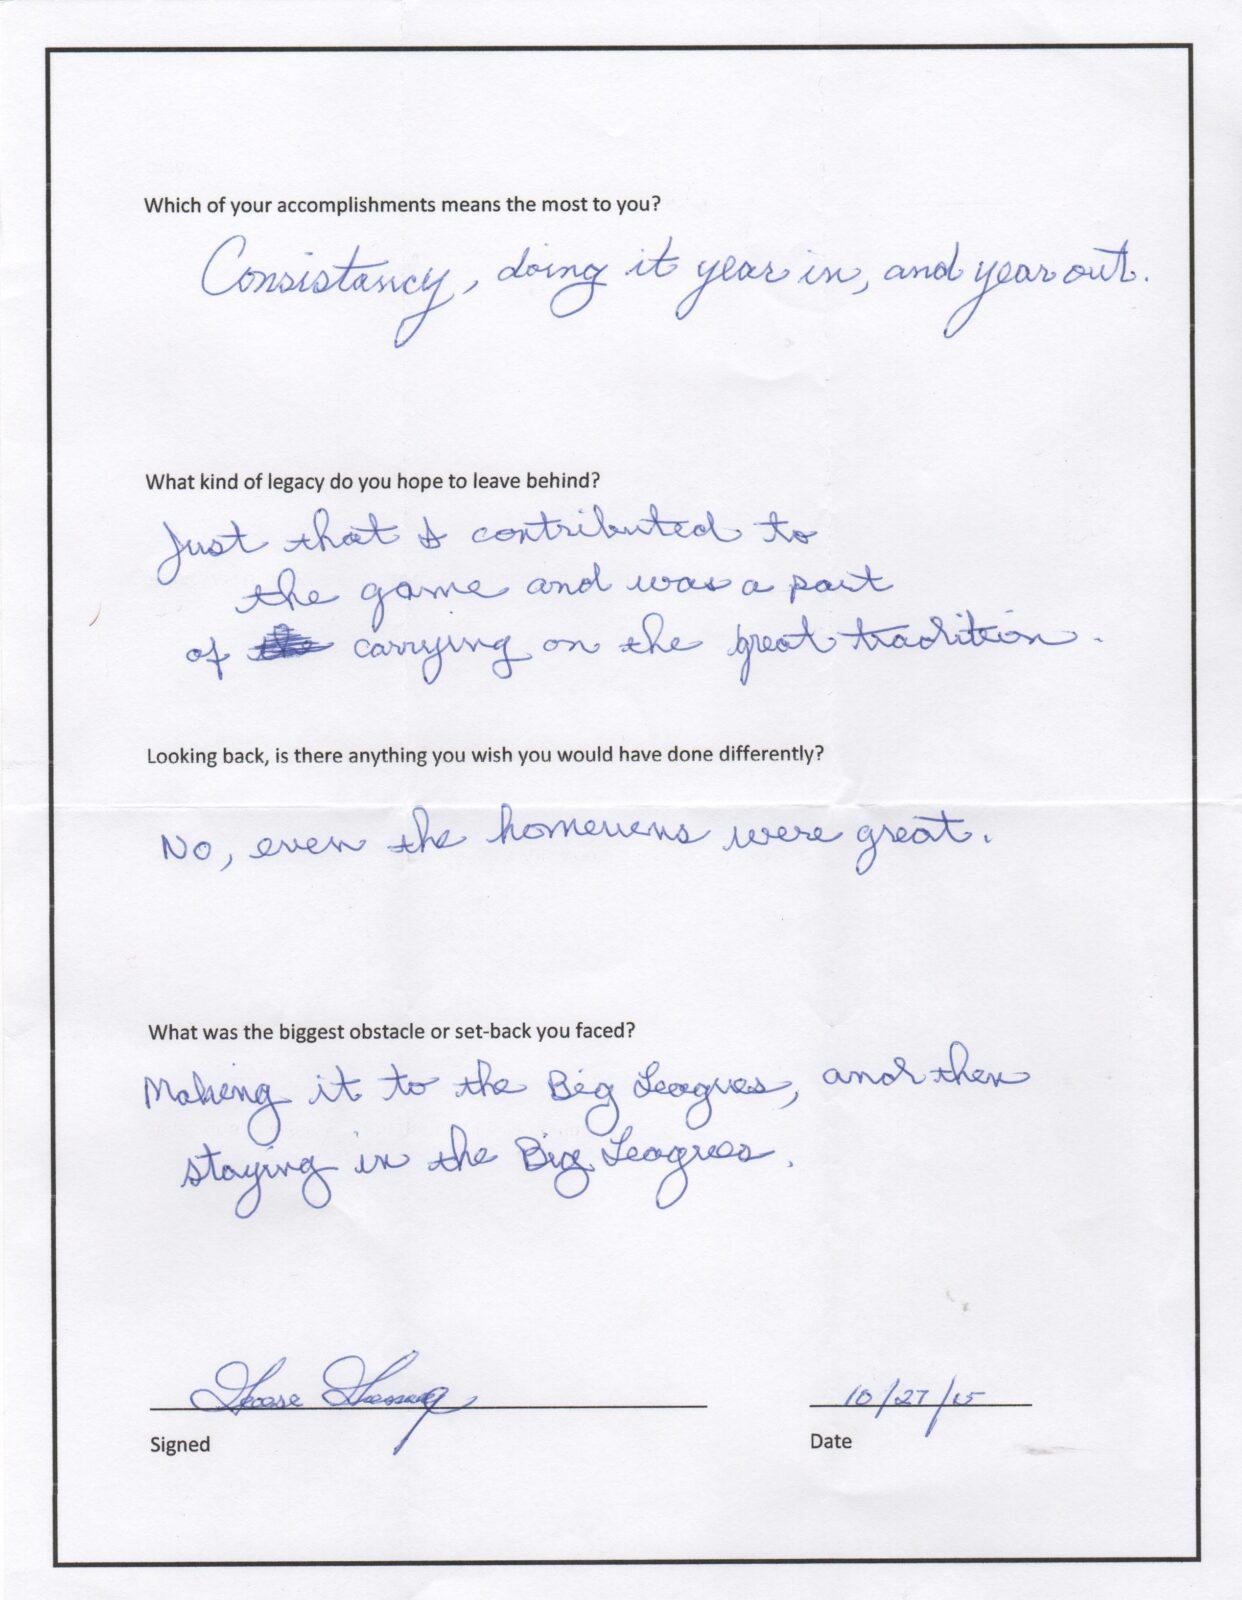 Which of your accomplishments means the most to you?
Consistancy, doing it year in, and year out.
What kind of legacy do you hope to leave behind?
Just that I contributed to
the game and was a part
of the carrying on the great tradition.
Looking back, is there anything you wish you would have done differently?
No, even the homeruns were great.
What was the biggest obstacle or set-back you faced?
Making it to the Big Leagues, and then
staying in the Big Leagues.
Goose Gossage 10/27/15
Signed Date